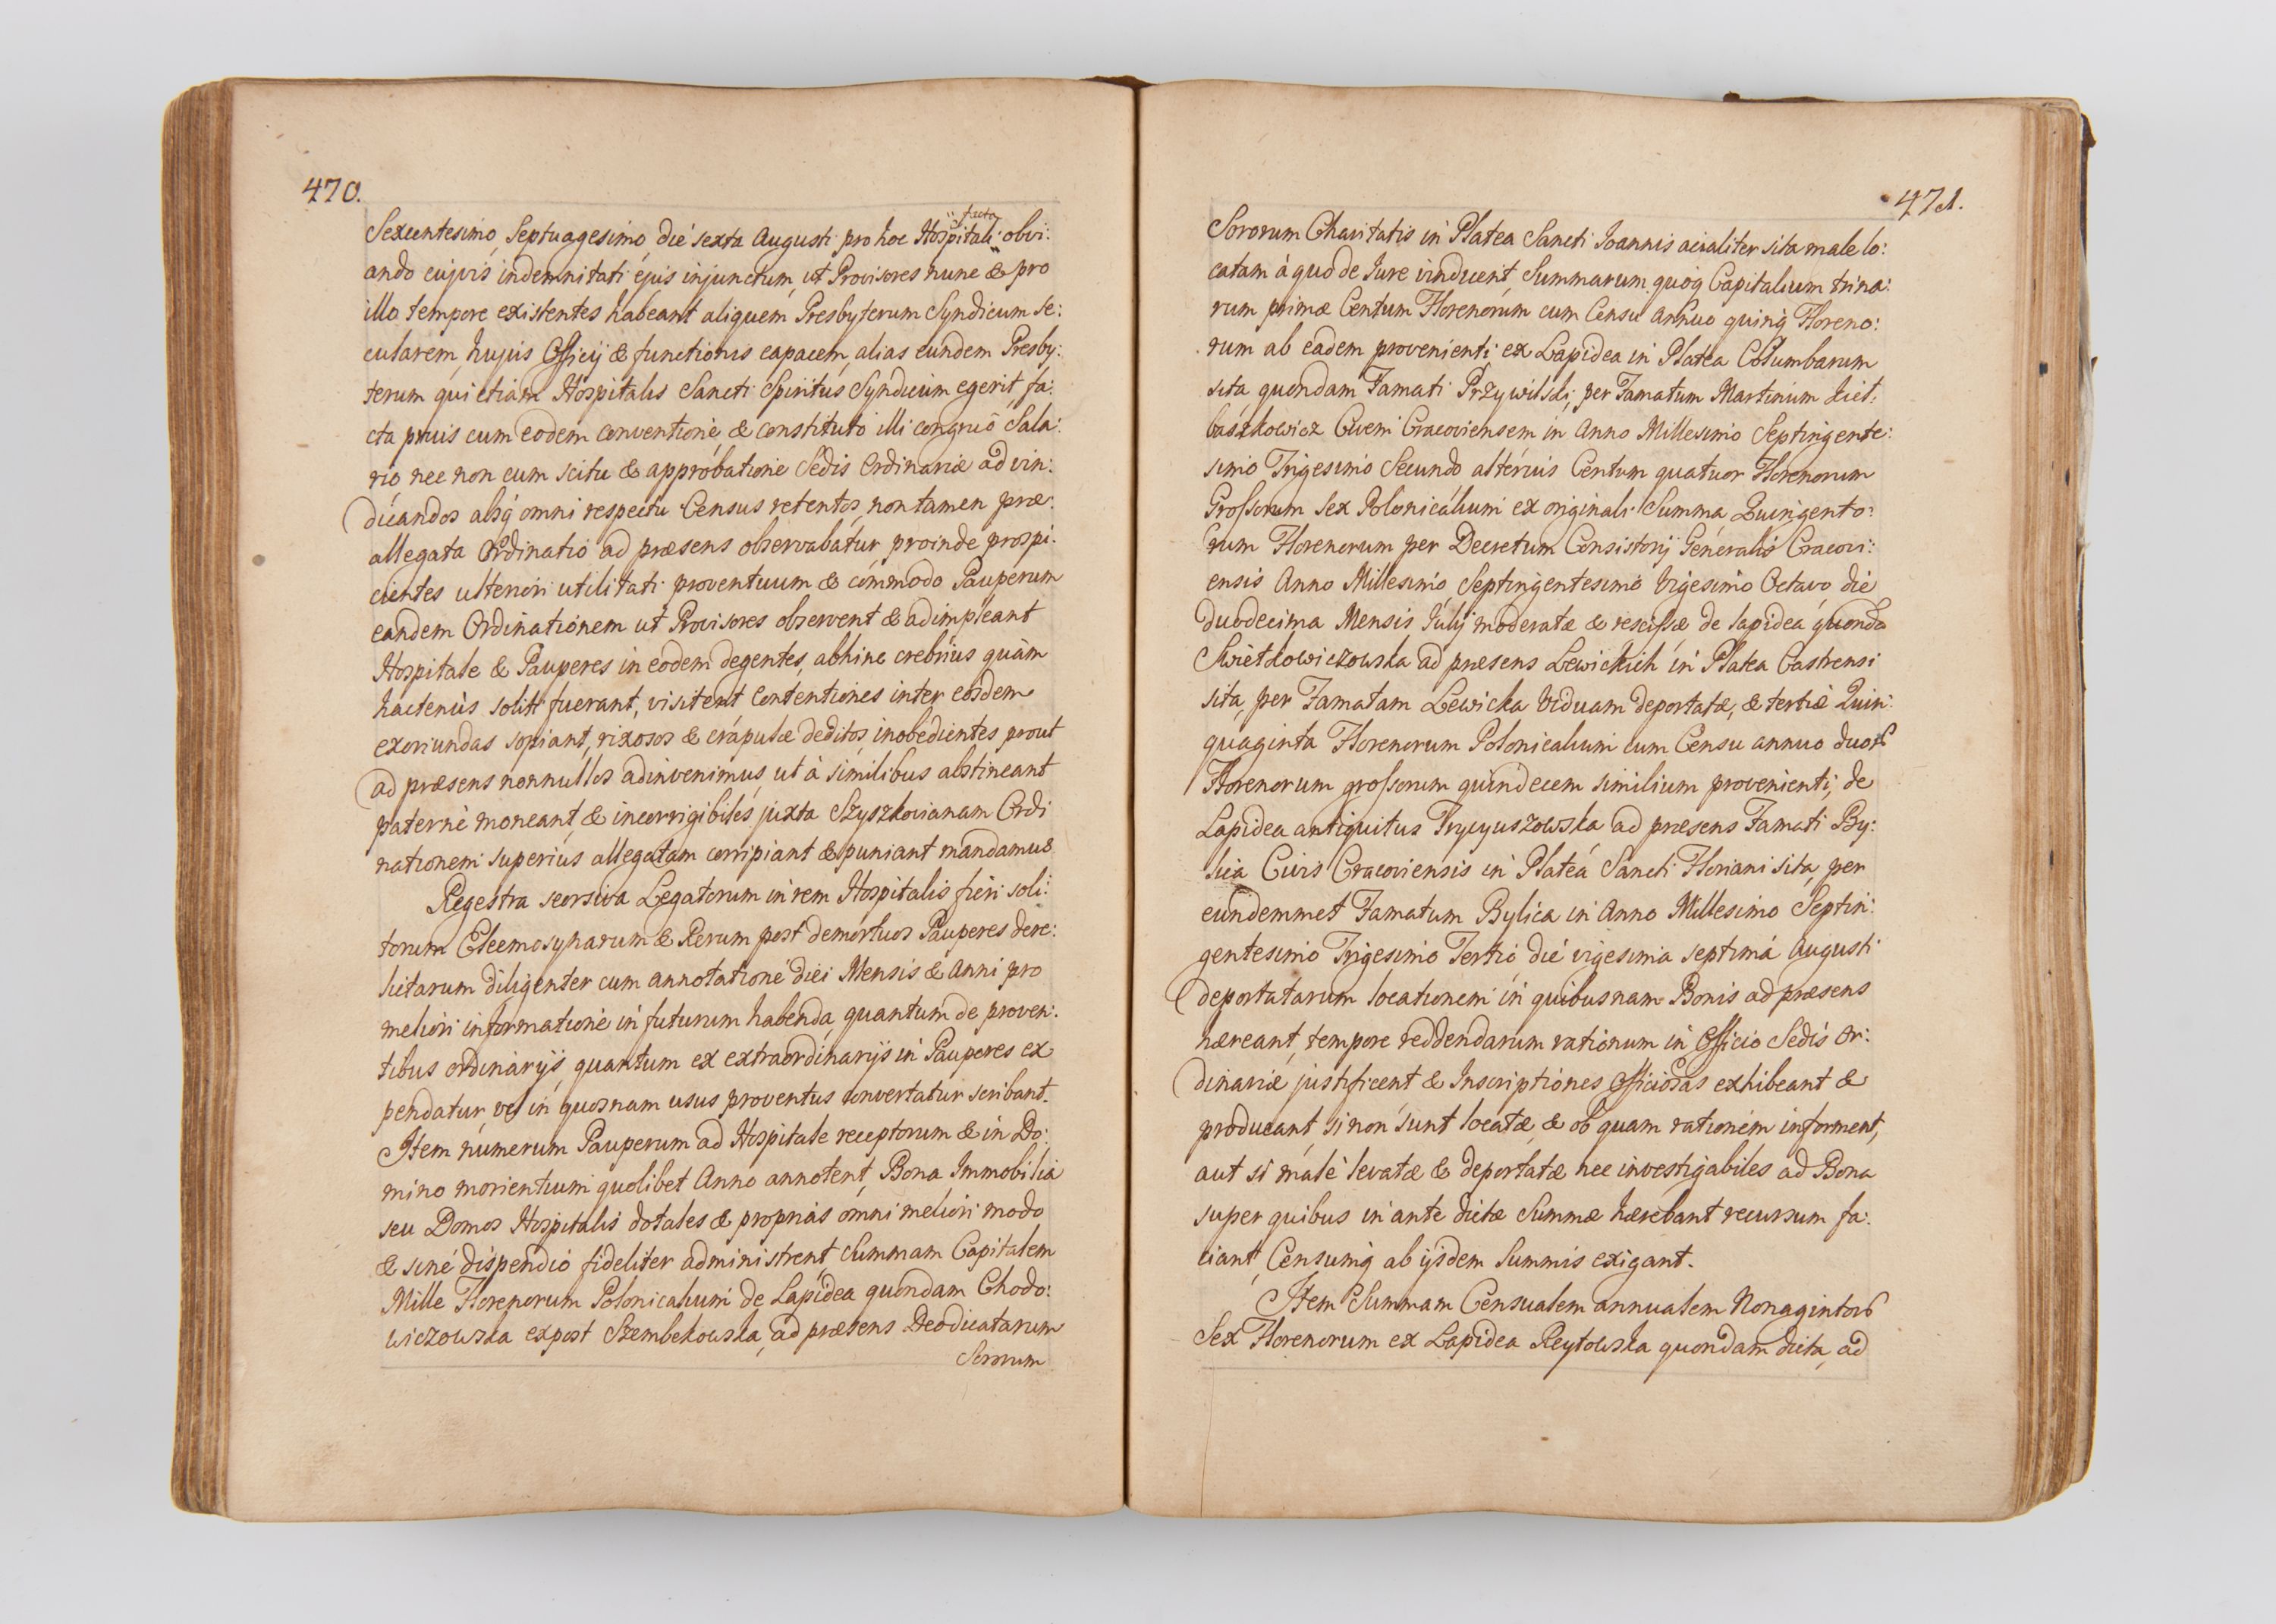 470.
facta
Sexcentesimo Septuagesimo die sexta Augusti pro hoc Hospitali obvi:
ando cujvis indemnitati ejus injunctum, ut Provisores nunc & pro
illo tempore existentes habeant aliquem Presbyterum Syndicum se:
cularem hujus Officij & functionis capacem, alias eundem Presby:
terum qui etiam Hospitalis Sancti Spiritus Syndicum egerit fa:
cta prius cum eodem conventione, & constituto illi congruo Sala:
rio nec non cum scitu & approbatione Sedis Ordinariæ ad vin:
dicandos absq omni respectu Census retentos, non tamen præ:
allegata Ordinatio ad præsens observabatur proinde prospi:
cientes ulteriori utilitati proventuum & commodo Pauperum
eandem Ordinationem ut Provisores observent & adimpleant
Hospitale & Pauperes in eodem degentes, abhinc crebrius quàm
hactenùs soliti fuerant, visitent Contentiones inter eosdem
exoriundas sopiant, rixosos & crapulæ deditos, inobedientes prout
ad præsens nonnullos adinvenimus, ut à similibus abstineant
paternè moneant, & incorrigibiles juxta Szyszkovianam Ordi
nationem superius allegatam corripiant & puniant mandamus
Regestra seorsiva Legatorum in rem Hospitalis fieri soli:
torum Eleemosynarum & Rerum post demortuos Pauperes dere:
lictarum diligenter cum annotatione diei Mensis & Anni pro
meliori informatione in futurum habenda, quantum de proven:
tibus ordinarijs, quantum ex extraordinarijs in Pauperes ex
pendatur, vel in quosnam usus proventus convertatur scribant.
Item numerum Pauperum ad Hospitale receptorum & in Do:
mino morientium quolibet Anno annotent, Bona Immobilia
seu Domos Hospitalis dotales & proprias omni meliori modo
& sine dispendio fideliter administrent, Summam Capitalem
Mille Florenorum Polonicalium de Lapidea quondam Chodo:
wiczowska expost Szembekowska, ad præsens Deodicatarum
Sororum
471.
Sororum Charitatis in Platea Sancti Ioannis acialiter sita male lo:
catam à quo de Iure vinducent, Summarum quoq Capitalium trina:
rum primæ Centum Florenorum cum Censu annuo quinq Floreno:
rum ab eadem provenienti, ex Lapidea in Platea Columbarum
sita quondam Famati Przywilski, per Famatum Martinum Kieł:
baszkowicz Civem Cracoviensem in Anno Millesimo Septingente:
simo Trigesimo Secundo alterius Centum quatuor Florenorum
Grossorum sex Polonicalium ex originali Summa Quingento:
rum Florenorum per Decretum Consistorij Generalis Cracovi:
ensis Anno Millesimo Septingentesimo Vigesimo Octavo, die
duodecima Mensis Julij moderatæ & rescissæ de lapidea quonda
Swietkowiczowska ad præsens Lewickich in Platea Castrensi
sita, per Famatam Lewicka Viduam deportatæ, & tertiæ Quin:
quaginta Florenorum Polonicalium cum Censu annuo duor
Florenorum grossorum quindecem similium provenienti, de
Lapidea antiquitus Trycyuszowska ad præsens Famati By:
lica Civis Cracoviensis in Platea Sancti Floriani sita, per
eundemmet Famatum Bylica in Anno Millesimo Septin:
gentesimo Trigesimo Tertio die vigesima septima Augusti
deportatarum locationem in quibusnam Bonis ad præsens
hæreant, tempore reddendarum rationum in Officio Sedis Or:
dinariæ justificent & Inscriptiones Officiosas exhibeant &
producant, si non sunt locatæ, & ob quam rationem informent,
aut si malè levatæ & deportatæ nec investigabiles ad Bona
super quibus in ante dictæ Summæ hærebant recursum fa:
ciant, Censumq ab ijsdem Summis exigant.
Item Summam Censualem annualem Nonagintor
Sex Florenorum ex Lapidea Reytowska quondam dicta, ad